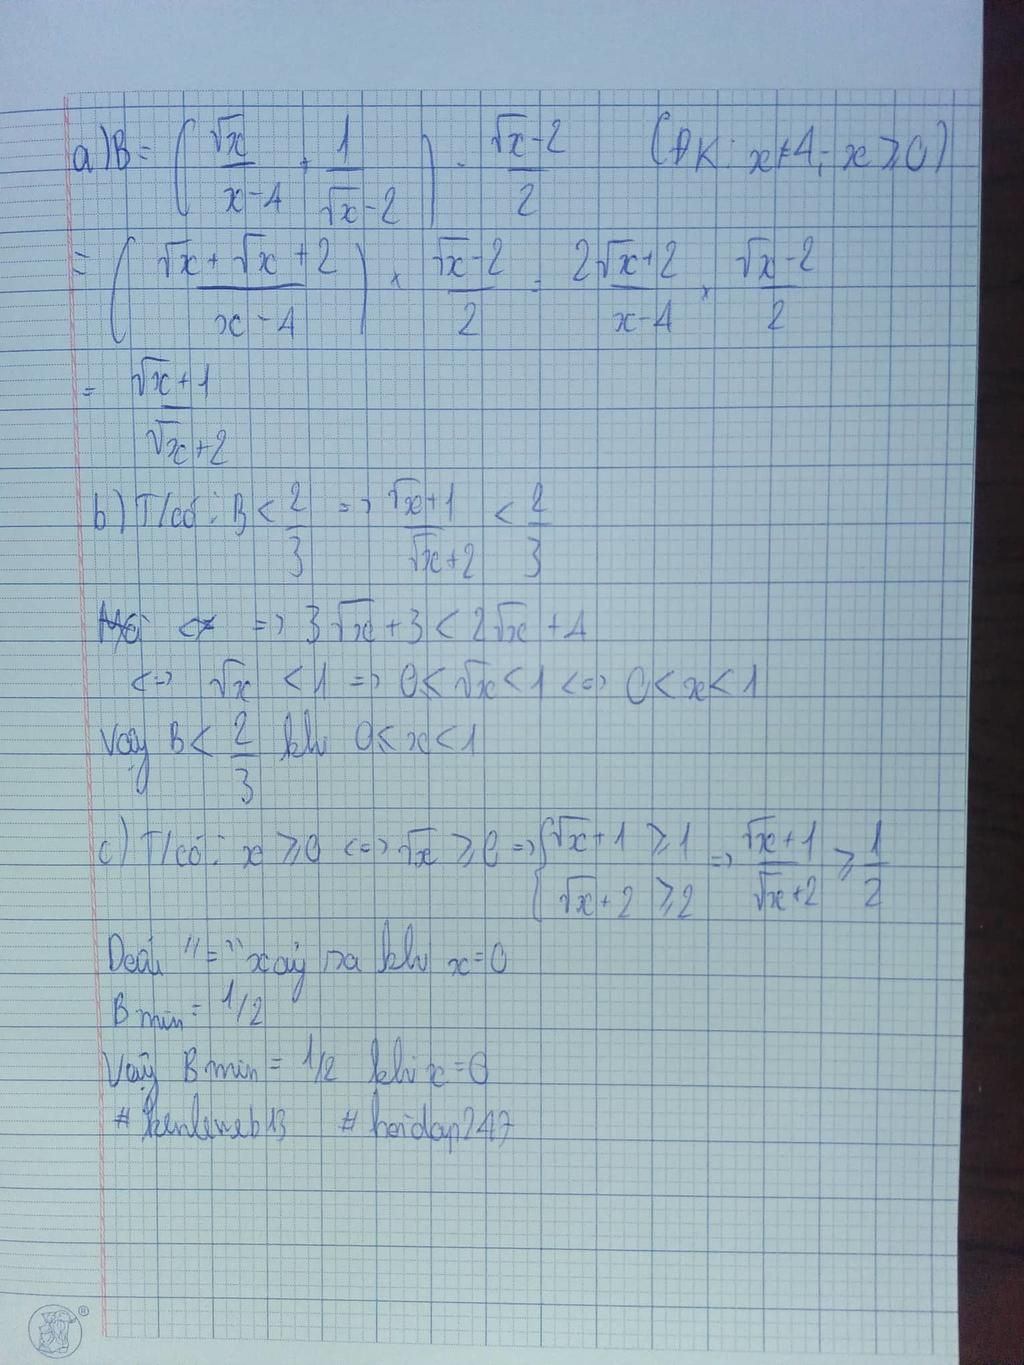 a) B = ( √x / (x-4) + 1 / (√x-2) ) . (√x-2) / 2 (ĐK: x≠4; x ≥ 0)
= ( (√x + √x + 2) / (x-4) ) × (√x-2) / 2 = (2√x+2) / (x-4) × (√x-2) / 2
= (√x+1) / (√x+2)
b) T/có: B < 2/3 => (√x+1) / (√x+2) < 2/3
=> 3√x + 3 < 2√x + 4
<=> √x < 1 => 0 < √x < 1 <=> 0 < x < 1
Vậy B < 2/3 khi 0 < x < 1
c) T/có: x ≥ 0 <=> √x ≥ 0 => { √x+1 ≥ 1 ; √x+2 ≥ 2 => (√x+1) / (√x+2) ≥ 1/2
Dấu "=" xảy ra khi x=0
B min = 1/2
Vậy B min = 1/2 khi x=0